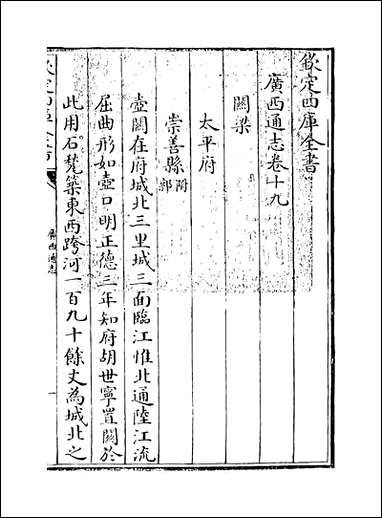 欽定四庫全書
廣西通志卷十九
關梁
太平府
崇善縣附郭
壺關在府城北三里城三面臨江惟北通陸江流
屈曲形如壺口明正德三年知府胡世寧置關於
此用石甃築東西跨河一百九十餘丈為城北之
廣西通志
一